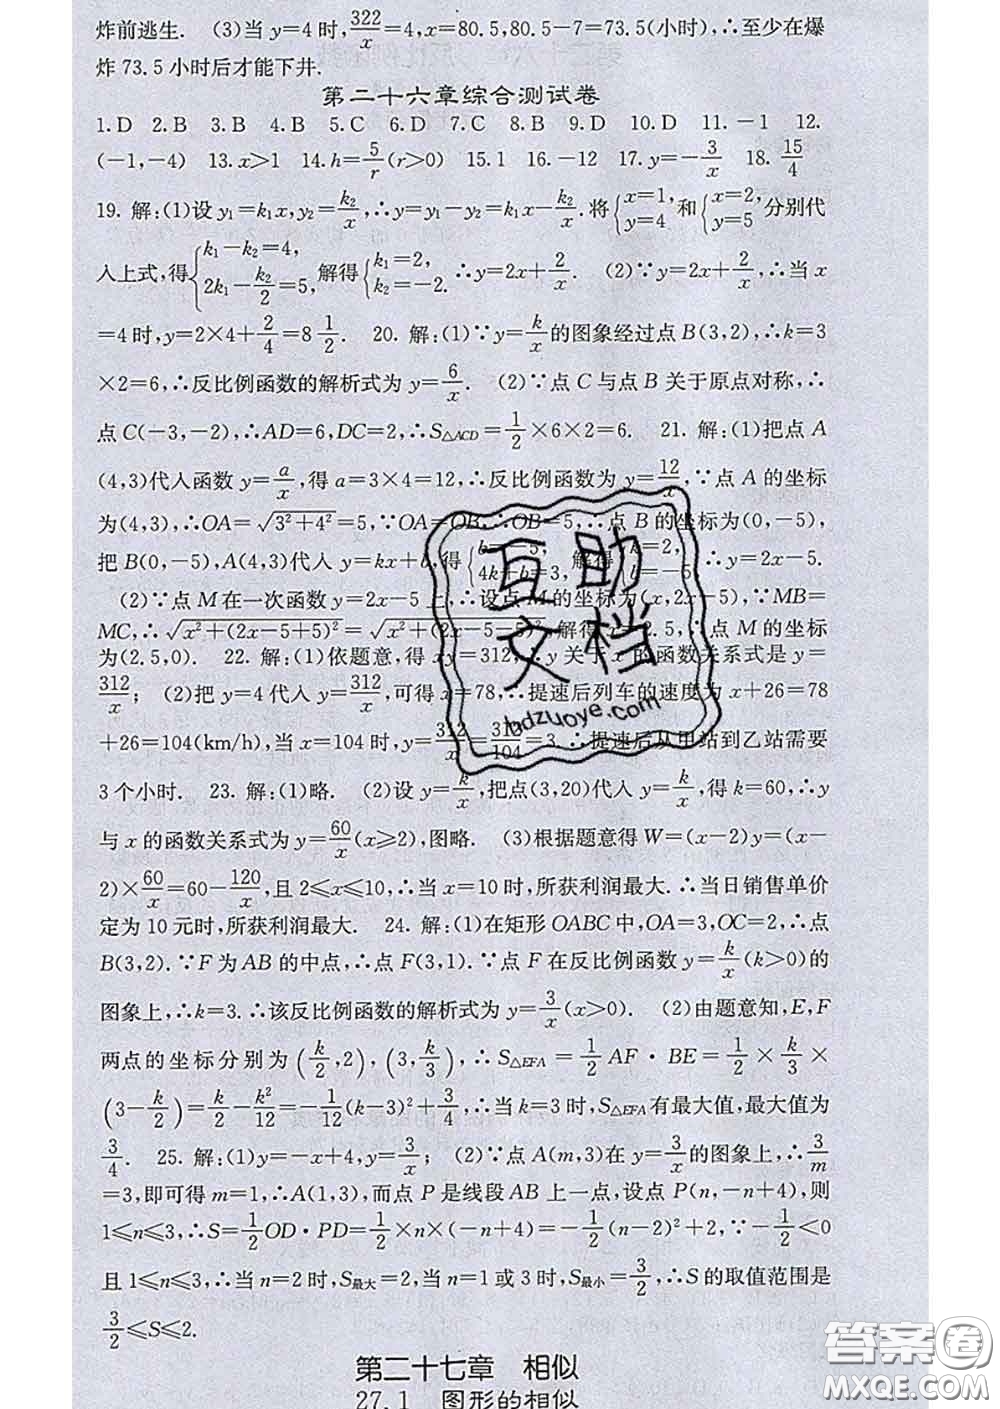 炸前逃生. (3)当 y=4 时,322/x=4,x=80.5,80.5-7=73.5(小时),∴至少在爆
炸 73.5 小时后才能下井.
第二十六章综合测试卷
1.D 2.B 3.B 4.B 5.C 6.D 7.C 8.B 9.D 10.D 11.-1 12.
(-1,-4) 13.x>1 14.h=5/r(r>0) 15.1 16.-12 17.y=-3/x 18.15/4
19. 解:(1)设 y₁=k₁x,y₂=k₂/x,∴y=y₁-y₂=k₁x-k₂/x.将{x=1, y=4 和{x=2, y=5 分别代
入上式,得{k₁-k₂=4, 2k₁-k₂/2=5, 解得{k₁=2, k₂=-2. ∴y=2x+2/x. (2)∵y=2x+2/x,∴当 x
=4 时,y=2×4+2/4=8 1/2. 20. 解:(1)∵y=k/x的图象经过点 B(3,2),∴k=3
×2=6,∴反比例函数的解析式为 y=6/x. (2)∵点 C 与点 B 关于原点对称,∴
点 C(-3,-2),∴AD=6,DC=2,∴S△ACD=1/2×6×2=6. 21. 解:(1)把点 A
(4,3)代入函数 y=a/x,得 a=3×4=12,∴反比例函数为 y=12/x,∵点 A 的坐标
为(4,3),∴OA=√(3²+4²)=5,∵OA=OB,∴OB=5,∴点 B 的坐标为(0,-5),
把 B(0,-5),A(4,3)代入 y=kx+b,得{b=-5, 4k+b=3, 解得{k=2, b=-5. ∴y=2x-5.
(2)∵点 M 在一次函数 y=2x-5 上,∴设点 M 的坐标为(x,2x-5),∵MB=
MC,∴√(x²+(2x-5+5)²)=√(x²+(2x-5-5)²),解得 x=2.5,∴点 M 的坐标
为(2.5,0). 22. 解:(1)依题意,得 xy=312,∴y 关于 x 的函数关系式是 y=
312/x; (2)把 y=4 代入 y=312/x,可得 x=78,∴提速后列车的速度为 x+26=78
+26=104(km/h),当 x=104 时,y=312/x=312/104=3.∴提速后从甲站到乙站需要
3 个小时. 23. 解:(1)略. (2)设 y=k/x,把点(3,20)代入 y=k/x,得 k=60,∴y
与 x 的函数关系式为 y=60/x(x≥2),图略. (3)根据题意得 W=(x-2)y=(x-
2)×60/x=60-120/x,且 2≤x≤10,∴当 x=10 时,所获利润最大.∴当日销售单价
定为 10 元时,所获利润最大. 24. 解:(1)在矩形 OABC 中,OA=3,OC=2,∴点
B(3,2).∵F 为 AB 的中点,∴点 F(3,1).∵点 F 在反比例函数 y=k/x(k>0)的
图象上,∴k=3.∴该反比例函数的解析式为 y=3/x(x>0). (2)由题意知,E,F
两点的坐标分别为(k/2,2),(3,k/3),∴S△EFA=1/2 AF·BE=1/2×k/3×
(3-k/2)=k/2-k²/12=-1/12(k-3)²+3/4,∴当 k=3 时,S△EFA有最大值,最大值为
3/4. 25. 解:(1)y=-x+4,y=3/x; (2)∵点 A(m,3)在 y=3/x的图象上,∴3/m
=3,即可得 m=1,∴A(1,3),而点 P 是线段 AB 上一点,设点 P(n,-n+4),则
1≤n≤3,∴S=1/2OD·PD=1/2×n×(-n+4)=-1/2(n-2)²+2,∵-1/2<0
且 1≤n≤3,∴当 n=2 时,S最大=2,当 n=1 或 3 时,S最小=3/2,∴S 的取值范围是
3/2≤S≤2.
第二十七章 相似
27.1 图形的相似
互助
文档
bdzuoye.com
答案圈
MXQE.COM